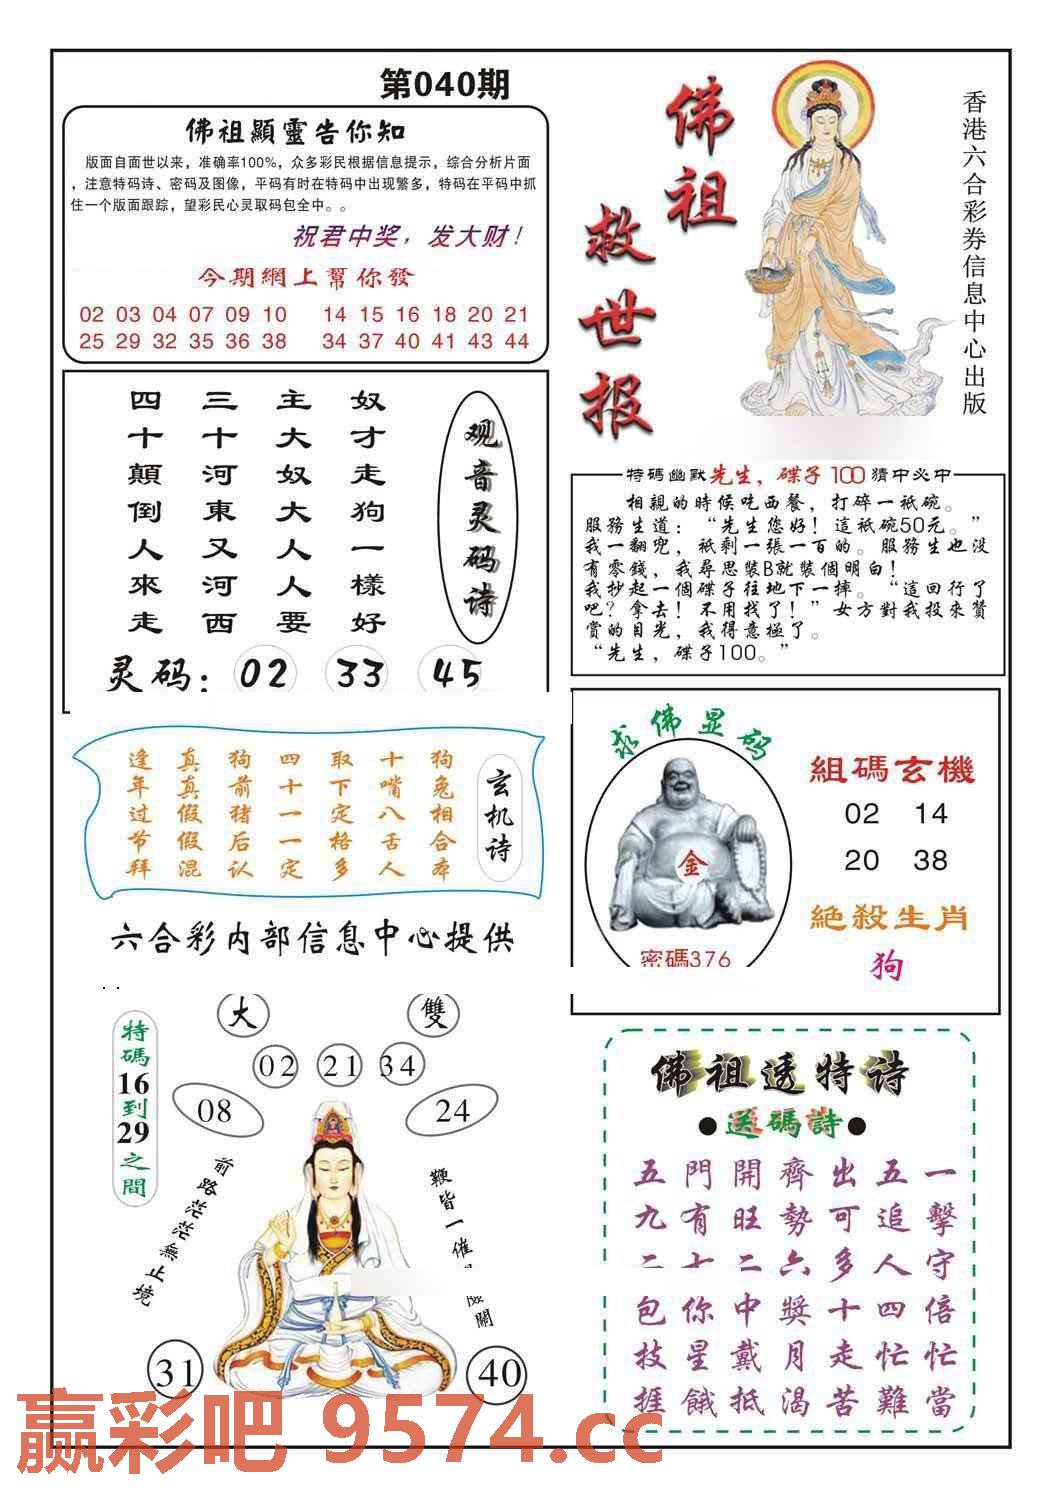 第040期
佛祖顯靈告你知
版面自面世以来，准确率100%，众多彩民根据信息提示，综合分析片面
，注意特码诗、密码及图像，平码有时在特码中出现繁多，特码在平码中抓
住一个版面跟踪，望彩民心灵取码包全中。。
祝君中奖，发大财！
今期網上幫你發
02 03 04 07 09 10 14 15 16 18 20 21
25 29 32 35 36 38 34 37 40 41 43 44
佛祖
救世报
香港六合彩券信息中心出版
观音灵码诗
奴才走狗一樣好
主大奴大人人要
三十河東又河西
四十顛倒人來走
灵码：02 33 45
特碼幽默先生，碟子100猜中必中
相親的時候吃西餐，打碎一祇碗。
服務生道：“先生您好！這祇碗50元。”
我一翻兜，祇剩一張一百的。服務生也没
有零錢，我尋思裝B就裝個明白！
我抄起一個碟子往地下一摔。“這回行了
吧？拿去！不用找了！”女方對我投來贊
賞的目光，我得意極了。
“先生，碟子100。”
玄机诗
狗兔相合本
十嘴八舌人
取下定格多
四十一一定
狗前猪后认
真真假假混
逢年过节拜
六合彩内部信息中心提供
求佛显码
金
密碼376
組碼玄機
02 14
20 38
絶殺生肖
狗
特碼16到29之間
大 雙
02 21 34
08 24
前路茫茫無止境
鞭皆一催
關
31 40
佛祖透特诗
●送碼詩●
一擊守倍忙當
五追人四忙難
出可多十走苦
齊勢六獎月渴
開旺二中戴抵
門有十你星餓
五九二包技捱
赢彩吧 9574.cc